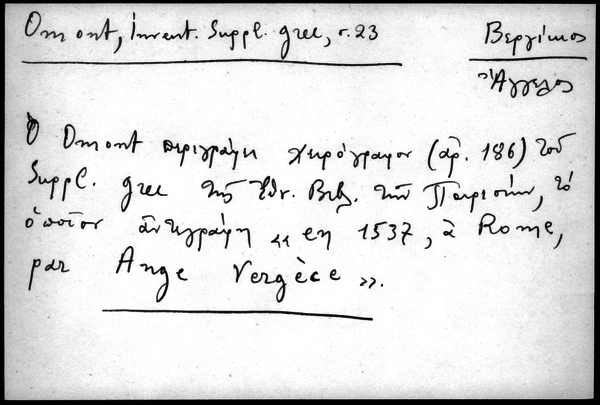 Omont, Invent. Suppl. grec, σ. 23
Βεργίκιος
Ἄγγελος
Ὁ Omont περιγράφει χειρόγραφον (ἀρ. 186) τοῦ
Suppl. grec τῆς Ἐθν. Βιβ. τῶν Παρισίων, τὸ
ὁποῖον ἀντεγράφη « en 1537, à Rome,
par Ange Vergèce ».